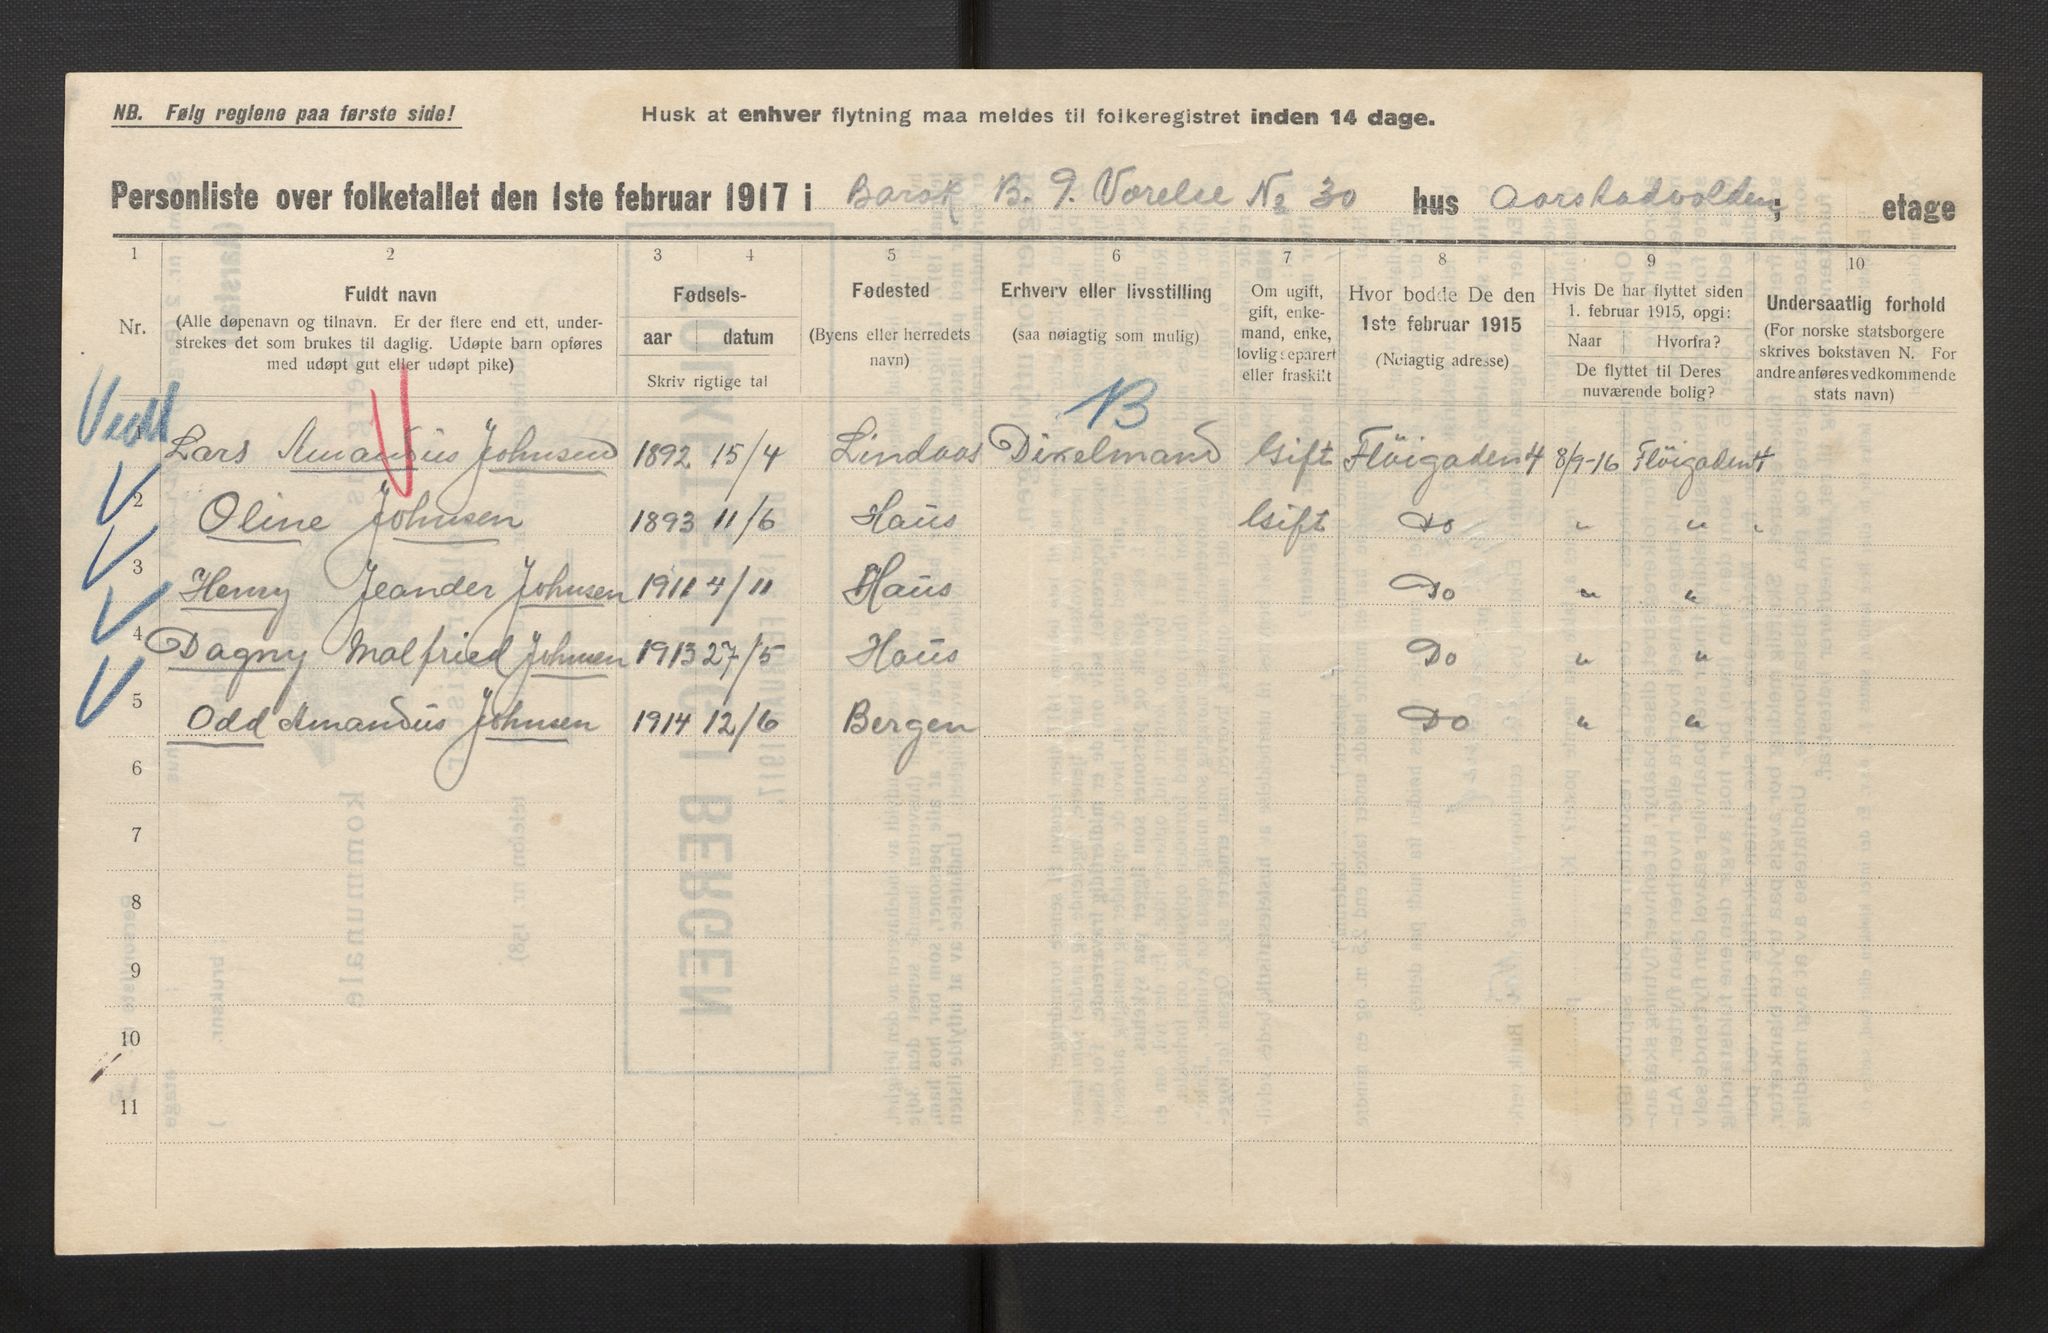 NB. Følg reglene paa første side!
Husk at enhver flytning maa meldes til folkeregistret inden 14 dage.
Personliste over folketallet den 1ste februar 1917 i Barak B. 9. Værelse No 30 hus Aarstadvolden; etage
1 2 3 4 5 6 7 8 9 10
Nr.
Fuldt navn
(Alle døpenavn og tilnavn. Er der flere end ett, under-
strekes det som brukes til daglig. Udøpte barn opføres
med udøpt gut eller udøpt pike)
Fødsels-
aar datum
Skriv rigtige tal
Fødested
(Byens eller herredets
navn)
Erhverv eller livsstilling
(saa nøiagtig som mulig)
Om ugift,
gift, enke-
mand, enke,
lovlig separert
eller fraskilt
Hvor bodde De den
1ste februar 1915
(Nøiagtig adresse)
Hvis De har flyttet siden
1. februar 1915, opgi:
Naar Hvorfra?
De flyttet til Deres
nuværende bolig?
Undersaatlig forhold
(For norske statsborgere
skrives bokstaven N. For
andre anføres vedkommende
stats navn)
B
Lars Amandus Johnsen 1892 15/4 Lindaas Dixelmand Gift Fløigaden 4 8/9-16 Fløigaden 4
2 Oline Johnsen 1893 11/6 Haus Gift Do " "
3 Henry Jeander Johnsen 1911 4/11 Haus Do " "
4 Dagny Malfried Johnsen 1913 27/5 Haus Do " "
5 Odd Amandus Johnsen 1914 12/6 Bergen Do " "
6
7
8
9
10
11